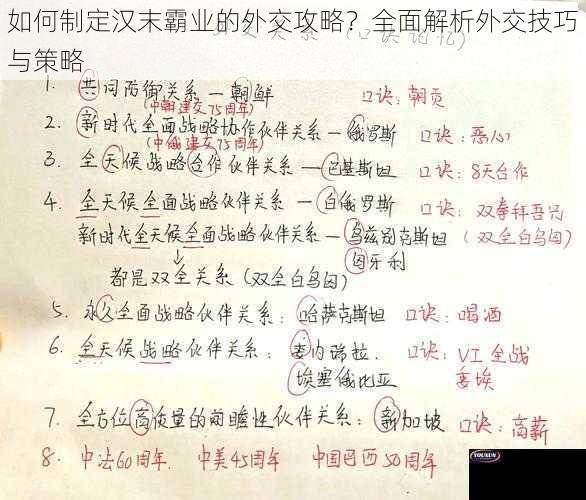 如何制定汉末霸业的外交攻略？全面解析外交技巧与策略
1. 共同防御关系—朝鲜 口诀:朝贡
(中朝建交75周年)
2. 新时代全面战略协作伙伴关系—俄罗斯 口诀:恶心
(中俄建交75周年)
3. 全天候战略合作伙伴关系—巴基斯坦 口诀:8天合作
4. 全天候全面战略伙伴关系—白俄罗斯 口诀:双拳拜吾兄
新时代全天候全面战略伙伴关系—乌兹别克斯坦 (双全白乌匈)
匈牙利
都是双全关系(双全白乌匈)
5. 永久全面战略伙伴关系:哈萨克斯坦 口诀:喝酒
6. 全天候战略伙伴关系:委内瑞拉. 口诀:VI全战
埃塞俄比亚 委埃
7. 全方位高质量的前瞻性伙伴关系:新加坡 口诀:高薪
8. 中法60周年. 中美45周年 中国巴西50周年
YOUXUN